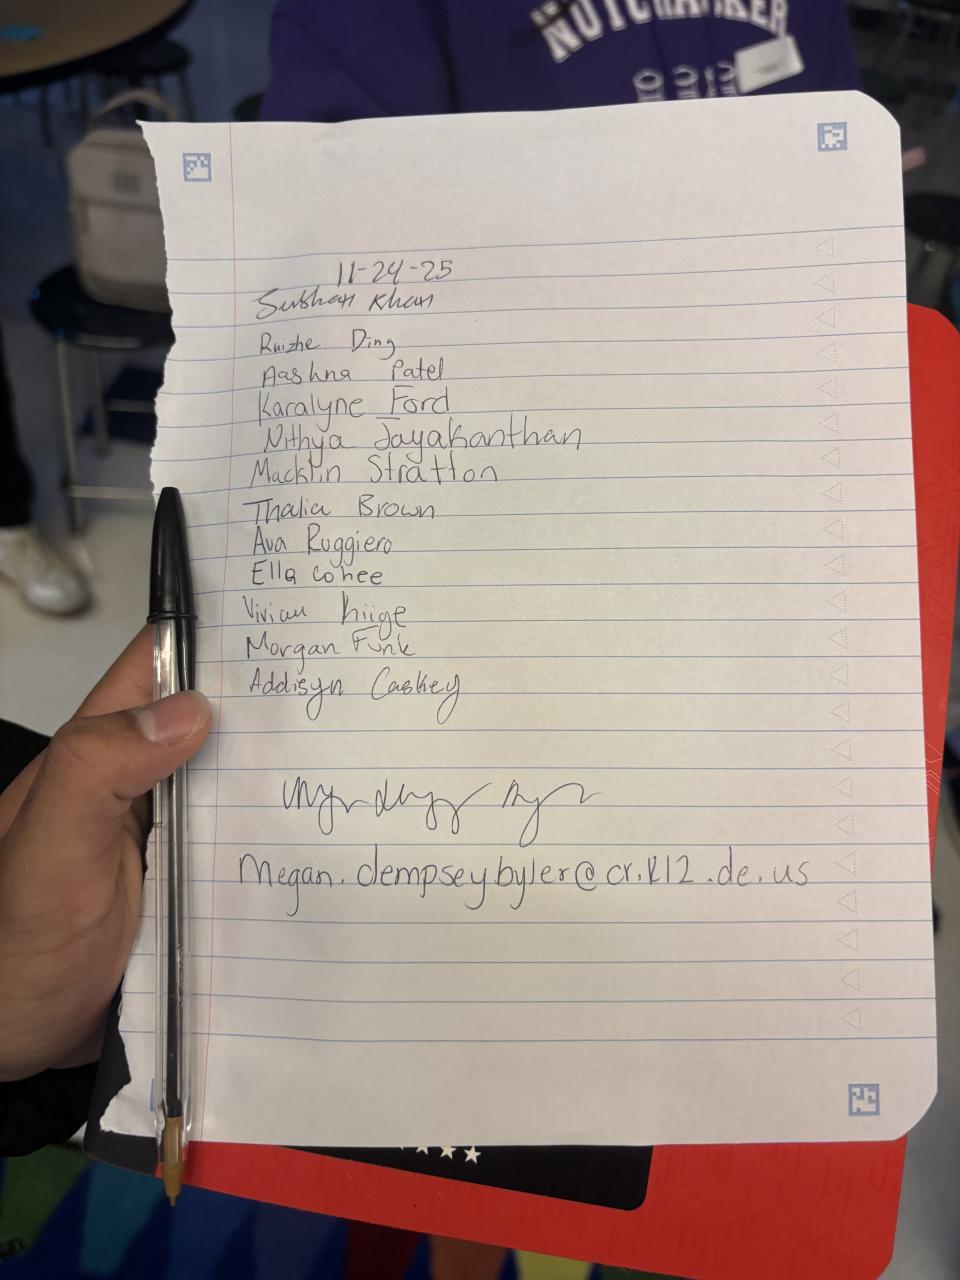 NUTCRACKER
11-24-25
Subhan Khan
Ruizhe Ding
Aashna Patel
Karalyne Ford
Nithya Jayakanthan
Macklin Stratton
Thalia Brown
Ava Ruggiero
Ella Cohee
Vivian
Morgan Funk
Addisyn Caskey
megan.dempseybyler@cr.k12.de.us